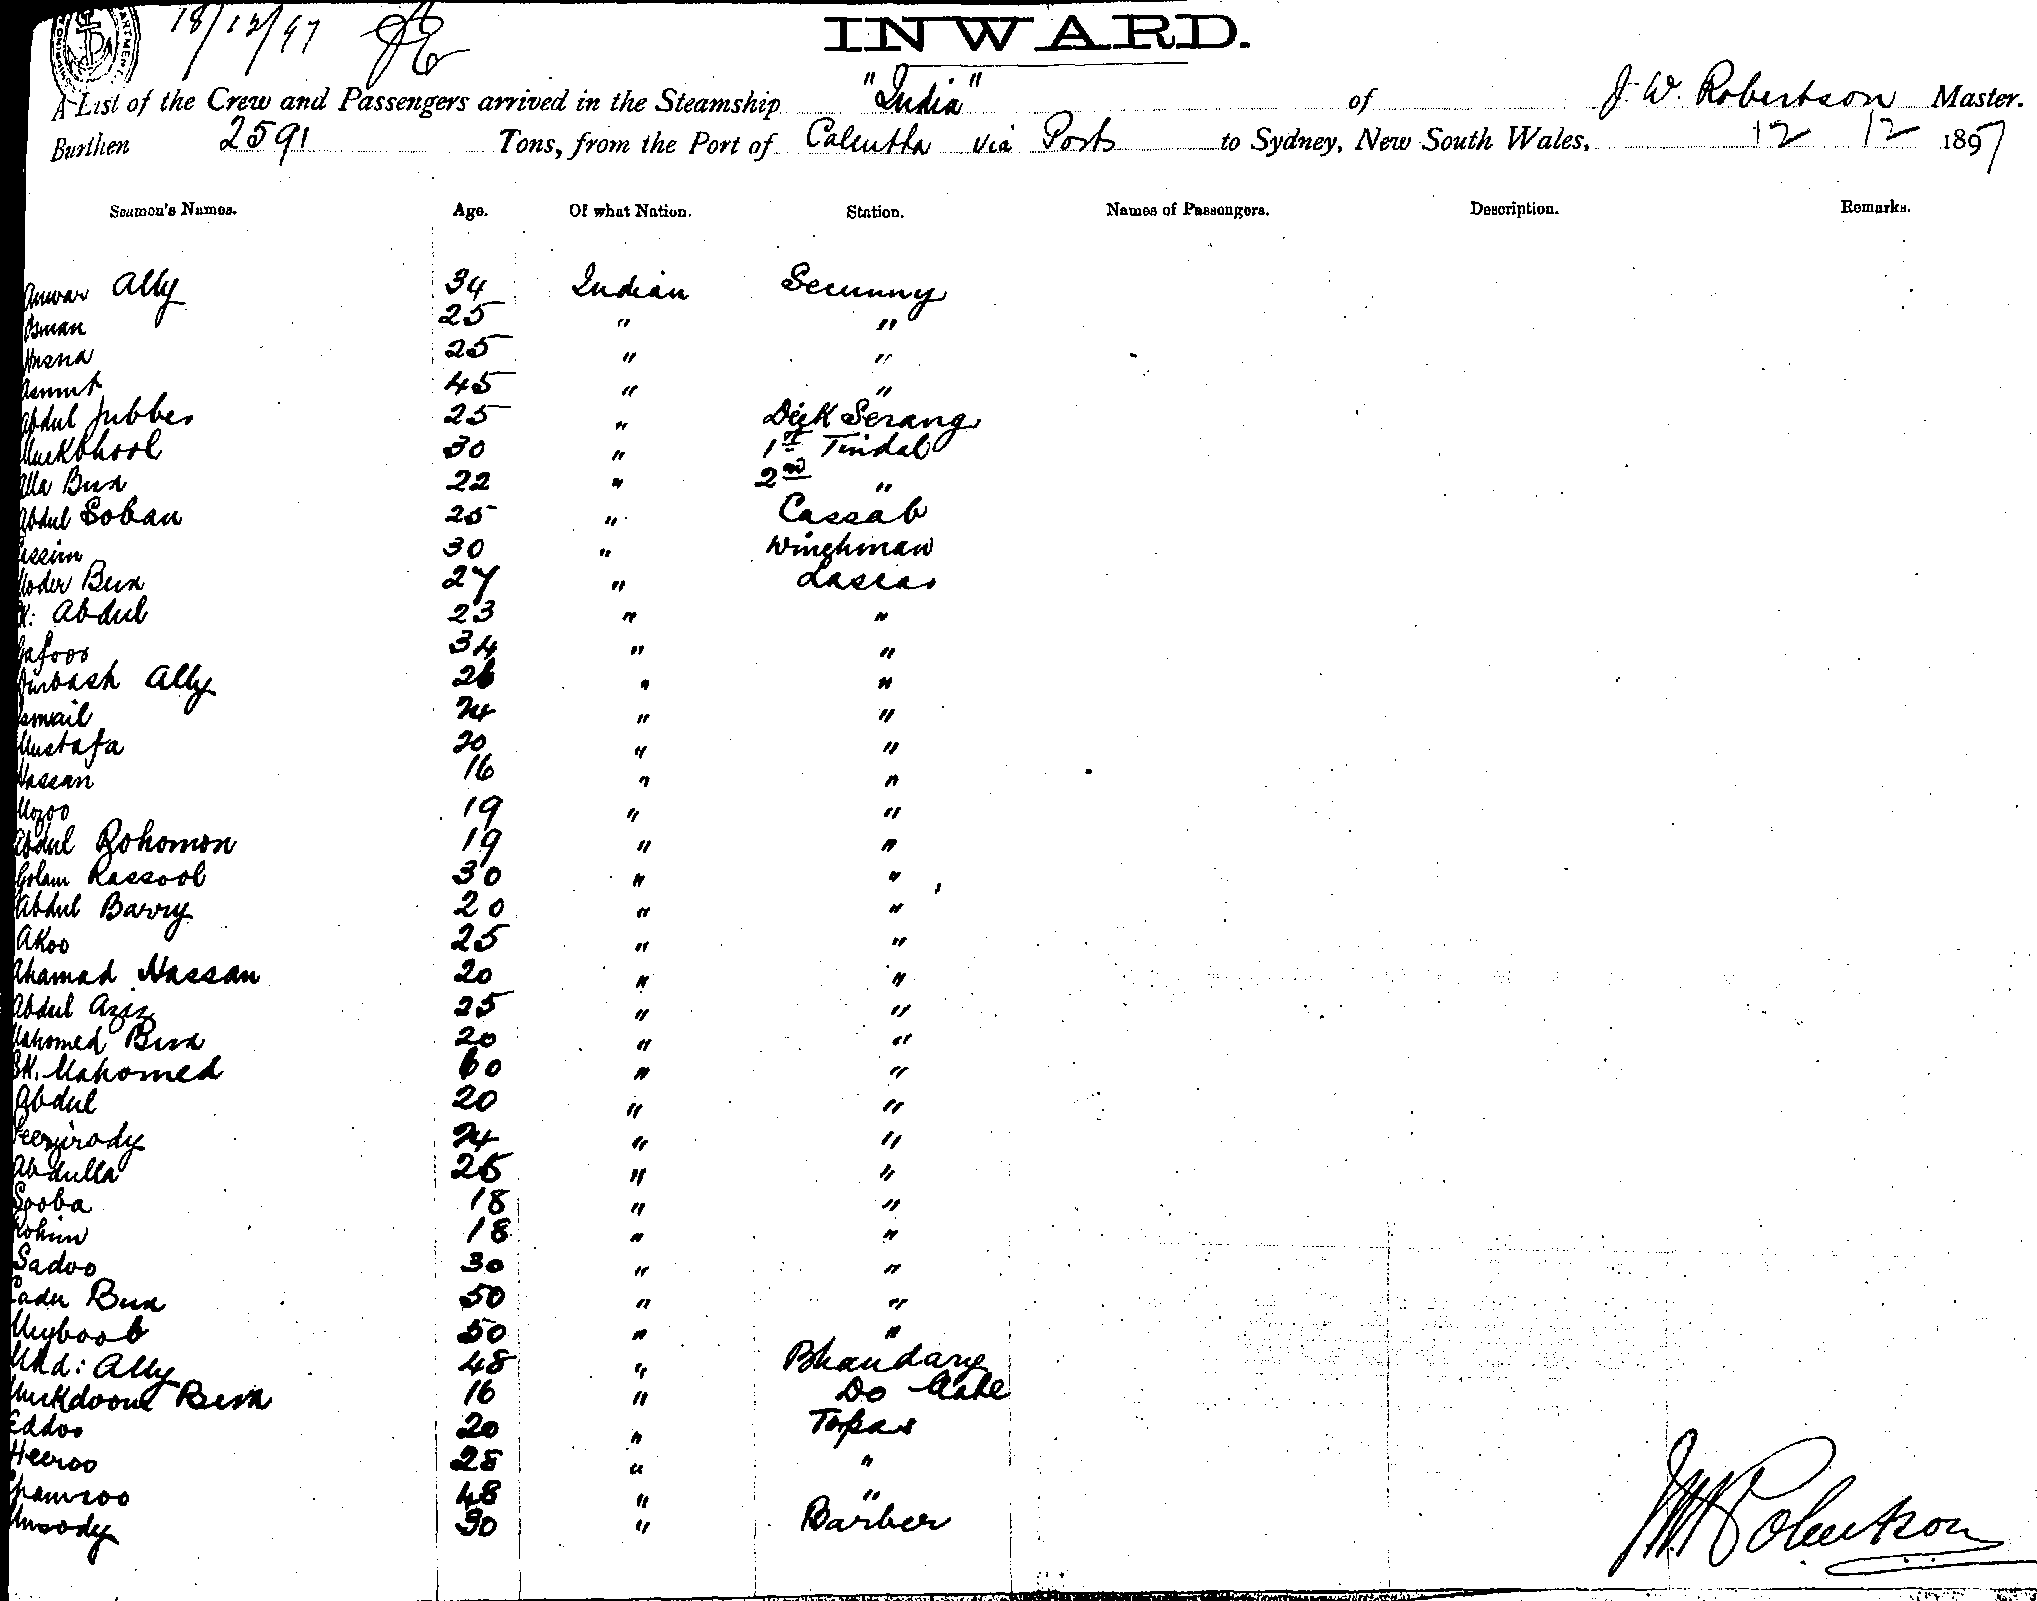 18/12/97
INWARD.
A List of the Crew and Passengers arrived in the Steamship "India" of J. W. Robertson Master.
Burthen 2591 Tons, from the Port of Calcutta via Ports to Sydney, New South Wales, 12 12 1897
Seamen's Names. Age. Of what Nation. Station. Names of Passengers. Description. Remarks.
Anwar Ally 34 Indian Secunny
Osman 25 " "
Husna 25 " "
Asmut 45 " "
Abdul Jubber 25 " Deck Serang
Muckbhool 30 " 1st Tindal
Alla Bux 22 " 2nd "
Abdul Soban 25 " Cassab
30 " Winchman
Moder Bux 27 " Lascar
Sk: Abdul 23 " "
Gafoor 34 " "
Ally 26 " "
Ismail 24 " "
Mustafa 20 " "
Hassan 16 " "
Mozoo 19 " "
Abdul Rohomon 19 " "
Golam Rassool 30 " "
Abdul Barry 20 " "
Akoo 25 " "
Ahamad Hassan 20 " "
Abdul Aziz 25 " "
Mahomed Bux 20 " "
Sk. Mahomed 60 " "
Abdul 20 " "
24 " "
Abdulla 25 " "
Sooba 18 " "
Rohim 18 " "
Sadoo 30 " "
Cader Bux 50 " "
Muyboob 50 " "
Mhd: Ally 48 " Bhandary
Muckdoom Bux 16 " Do Mate
Eddoo 20 " Topas
Heeroo 28 " "
48 " "
30 " Barber
JW Robertson